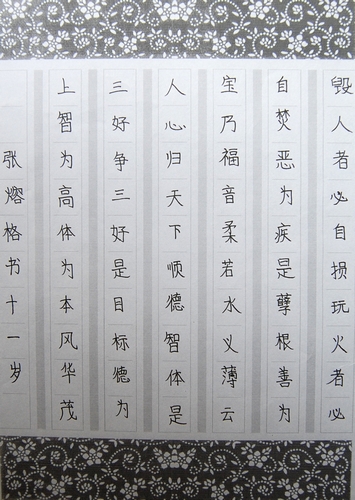 毁人者必自损玩火者必
自焚恶为疾是孽根善为
宝乃福音柔若水义薄云
人心归天下顺德智体是
三好争三好是目标德为
上智为高体为本风华茂
张熔格书十一岁